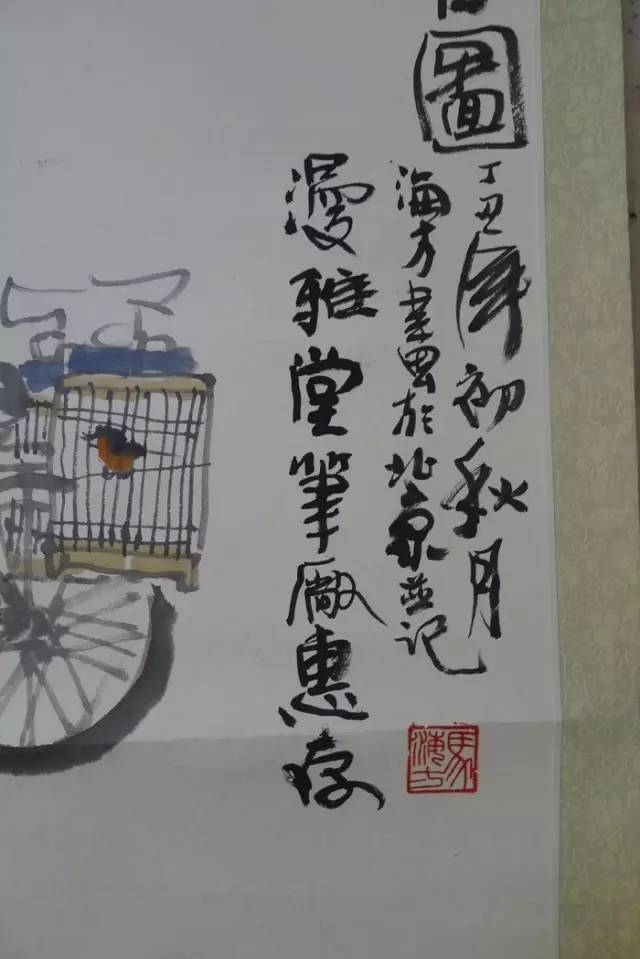 圖
丁丑年初秋月
海方畫於北京並记
漫雅堂筆廠惠存
馬海方